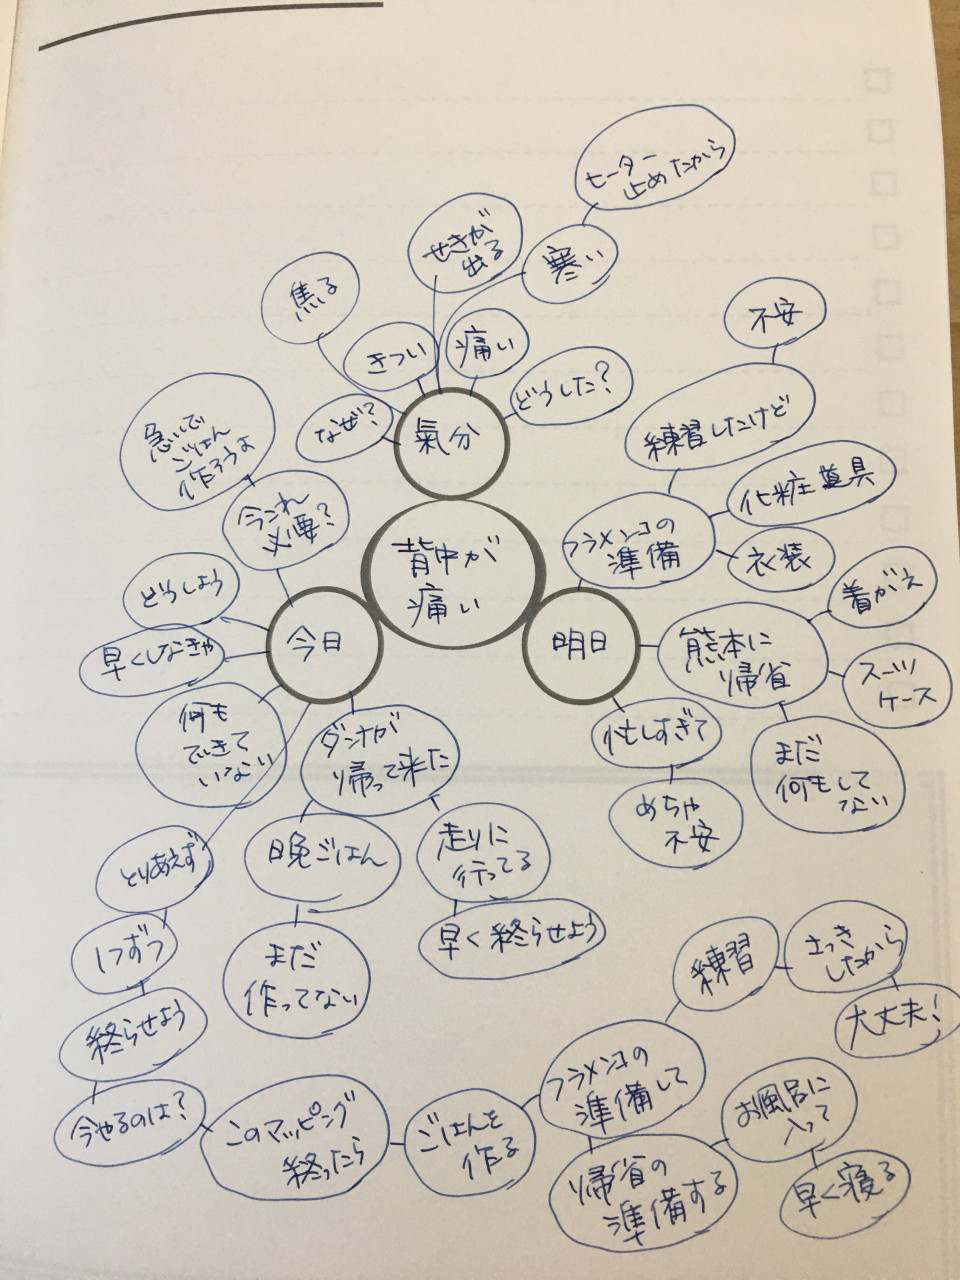 背中が
痛い
氣分
なぜ?
焦る
きつい
せきが
出る
寒い
ヒーター
止めたから
痛い
どうした?
明日
フラメンコの
準備
練習したけど
不安
化粧道具
衣装
熊本に
帰省
着がえ
スーツ
ケース
まだ
何もして
ない
忙しすぎて
めちゃ
不安
今日
今これ
必要?
急いで
ごはん
作ろうよ
どうしよう
早くしなきゃ
何も
できて
いない
ダンナが
帰って来た
晩ごはん
まだ
作ってない
走りに
行ってる
早く終らせよう
とりあえず
1つずつ
終らせよう
今やるのは?
このマッピング
終ったら
ごはんを
作る
フラメンコの
準備して
練習
さっき
したから
大丈夫!
帰省の
準備する
お風呂に
入って
早く寝る